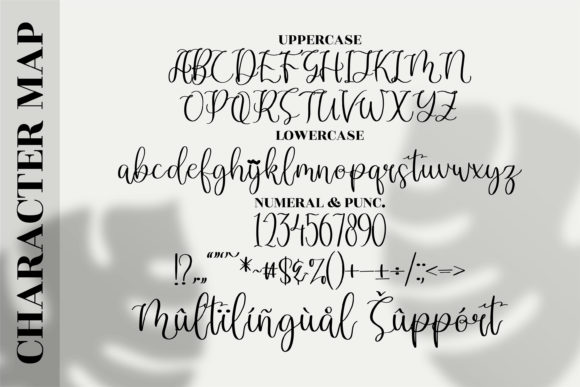 CHARACTER MAP
UPPERCASE
ABCDEFGHIJKLMN
OPQRSTUVWXYZ
LOWERCASE
abcdefghijklmnopqrstuvwxyz
NUMERAL & PUNC.
1234567890
!?,..,“”‘’*~#$&%()+-±÷/:;<=>
Mûltïlíñgùål Šûppórt